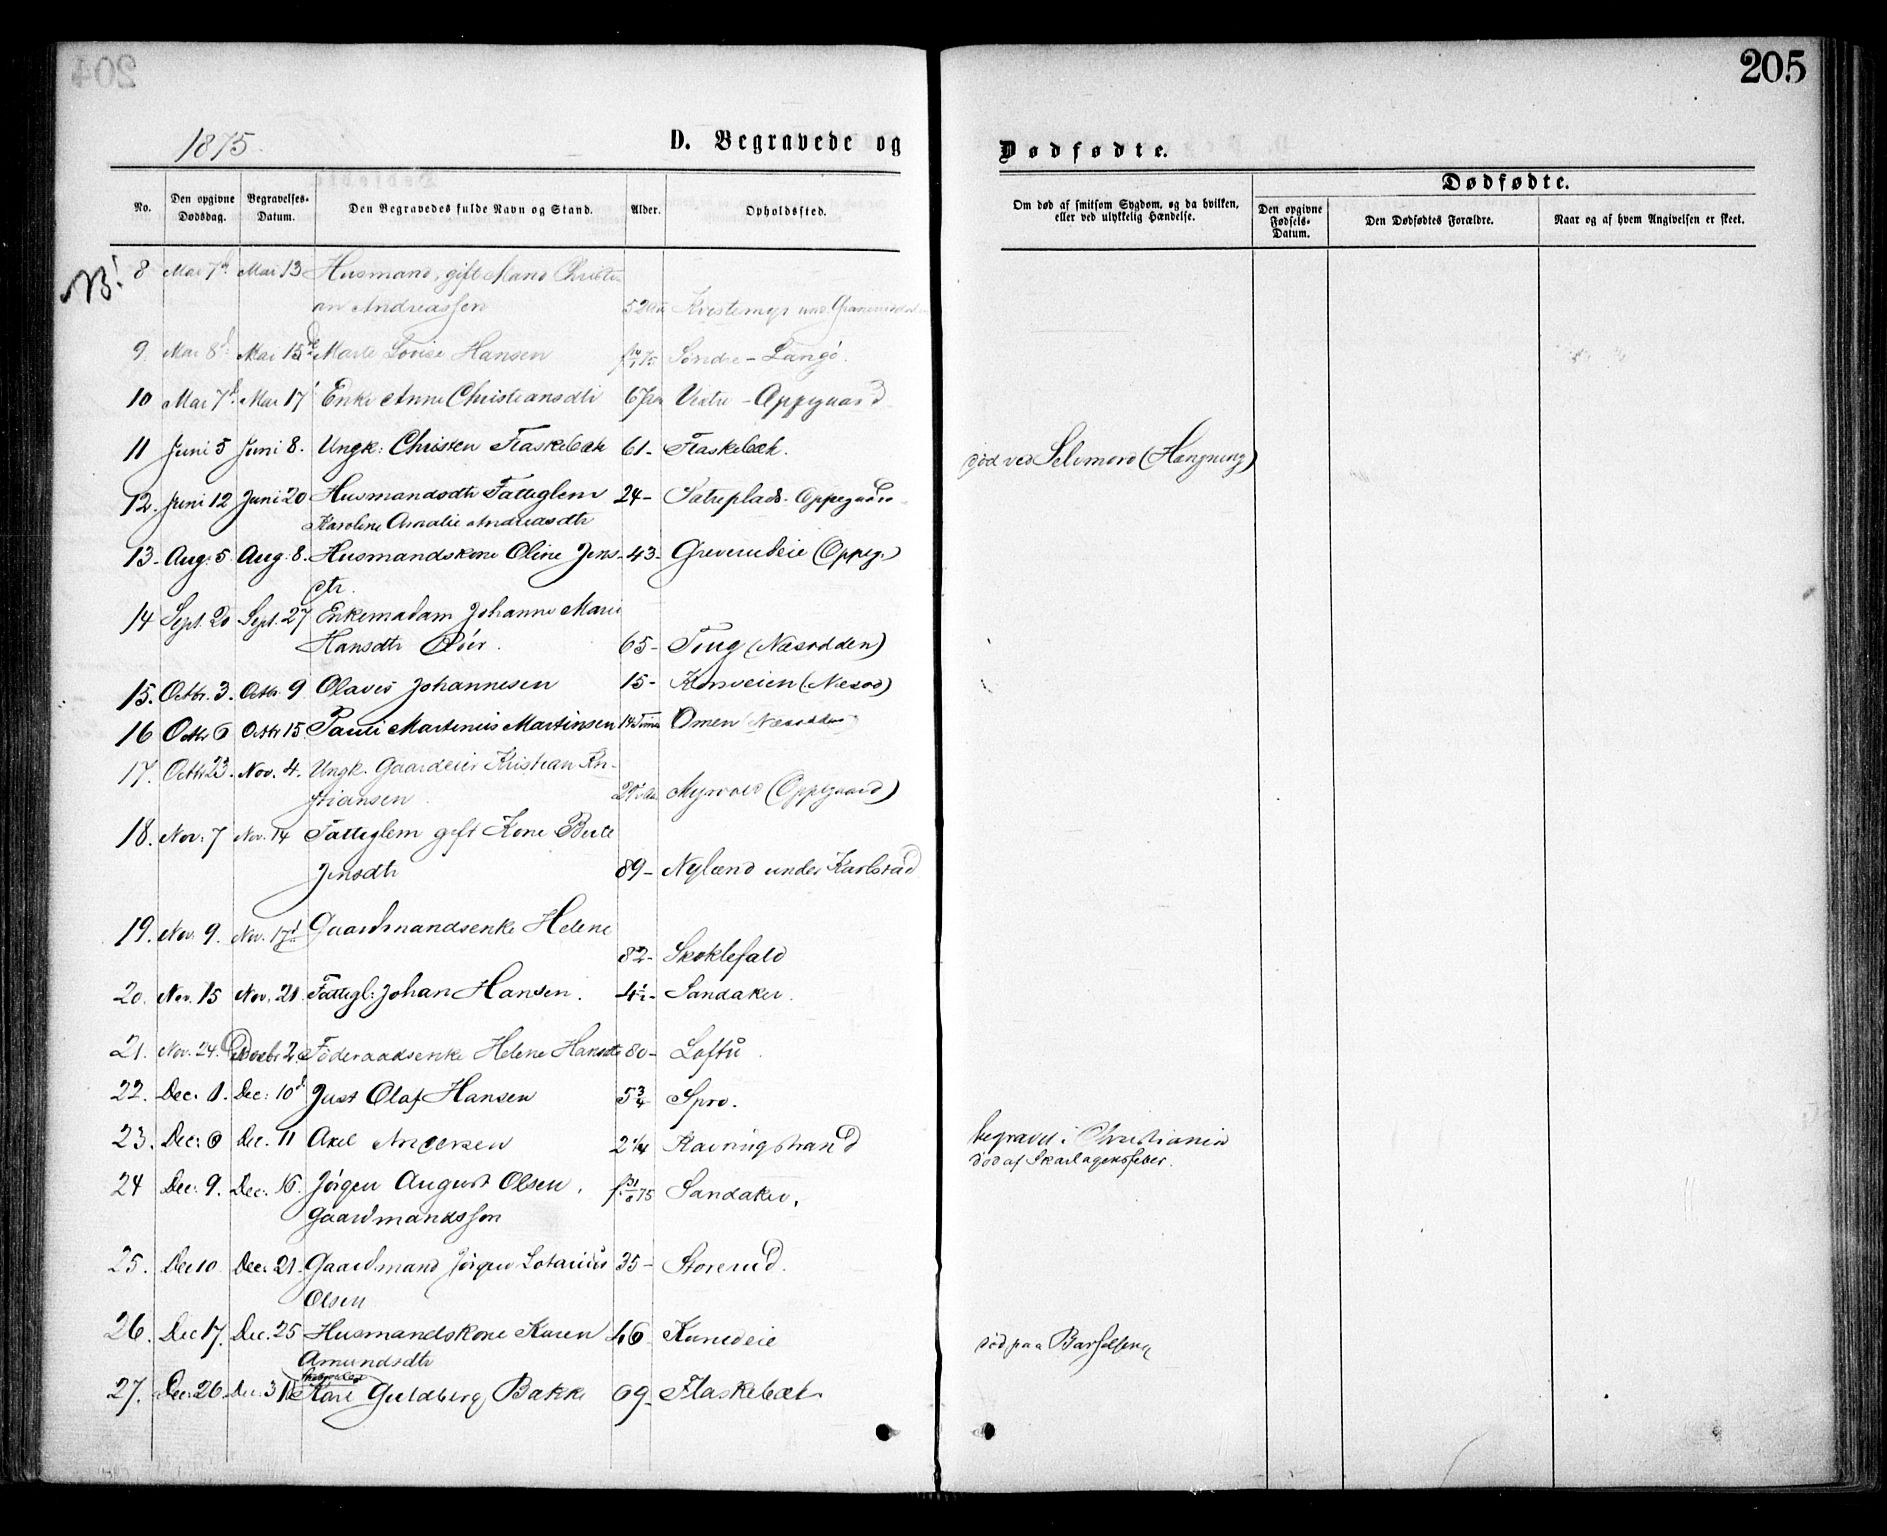 204
205
1875.
D. Begravede og
Dødfødte.
No.
Den opgivne Dødsdag.
Begravelses-Datum.
Den Begravedes fulde Navn og Stand.
Alder.
Opholdssted.
Om død af smitsom Sygdom, og da hvilken, eller ved ulykkelig Hændelse.
Dødfødte.
Den opgivne Fødsels-Datum.
Den Dødfødtes Forældre.
Naar og af hvem Angivelsen er skeet.
NB!
8 Mai 7de Mai 13 Husmand, gift Mand Christi
an Andreassen 52 Aar
9. Mai 8d. Mai 15de Marte Lovise Hansen Søndre-Langø.
10 Mai 7d. Mai 17 Enke Anne Christiansdtr 67 Aar Vestre-Oppegaard
11 Juni 5 Juni 8. Ungk: Christen Flaskebæk 61- Flaskebæk. død ved Selvmord (Hængning)
12. Juni 12 Juni 20 Husmandsdtr Fattiglem 24- Sætreplads. Oppegaard
Karoline Amalie Andreasdtr
13. Aug: 5. Aug: 8. Husmandskone Oline Jens- 43- Greverudeie (Oppeg.)
dtr.
14 Sept. 20 Sept. 27 Enkemadam Johanne Marie
Hansdtr 65- Tiug (Næsodden)
15. Octbr. 3. Octbr. 9 Olaves Johannesen 15- (Næsod)
16 Octbr 6 Octbr 15 Pauli Martinius Martinsen 14 Timer Omen (Næsodden)
17. Octbr 23. Nov. 4. Ungk. Gaardeier Kristian Kri-
stiansen. Myrvold (Oppegaard)
18. Nov: 7 Nov. 14 Fattiglem gift Kone Berte
Jensdtr 89- Nyland under Karlsrud
19. Nov. 9. Nov. 17d Gaardmandsenke Helene
82- Skoklefald
20. Nov. 15 Nov. 21. Fattigl: Johan Hansen. 4½- Sandaker.
21. Nov. 24. Decbr 2 Føderaadsenke Helene Hansdtr 80- Loftu.
22. Dec. 1. Dec: 10d Just Olaf Hansen 5¾ Spro.
23. Dec: 6 Dec. 11 Axel Andersen 2¼ Ravringstrand begravet i Christiania
død af Skarlagensfeber.
24 Dec: 9. Dec: 16. Jørgen August Olsen, Sandaker.
Gaardmandssøn
25. Dec 10 Dec: 21. Gaardmand Jørgen Lotarius 35- Storerud.
Olsen
26. Dec 17. Dec. 25 Husmandskone Karen 46 død paa Barselseng
Amundsdtr
27. Dec: 26. Dec. 31 Kari Guldberg Bakke 69- Flaskebæk